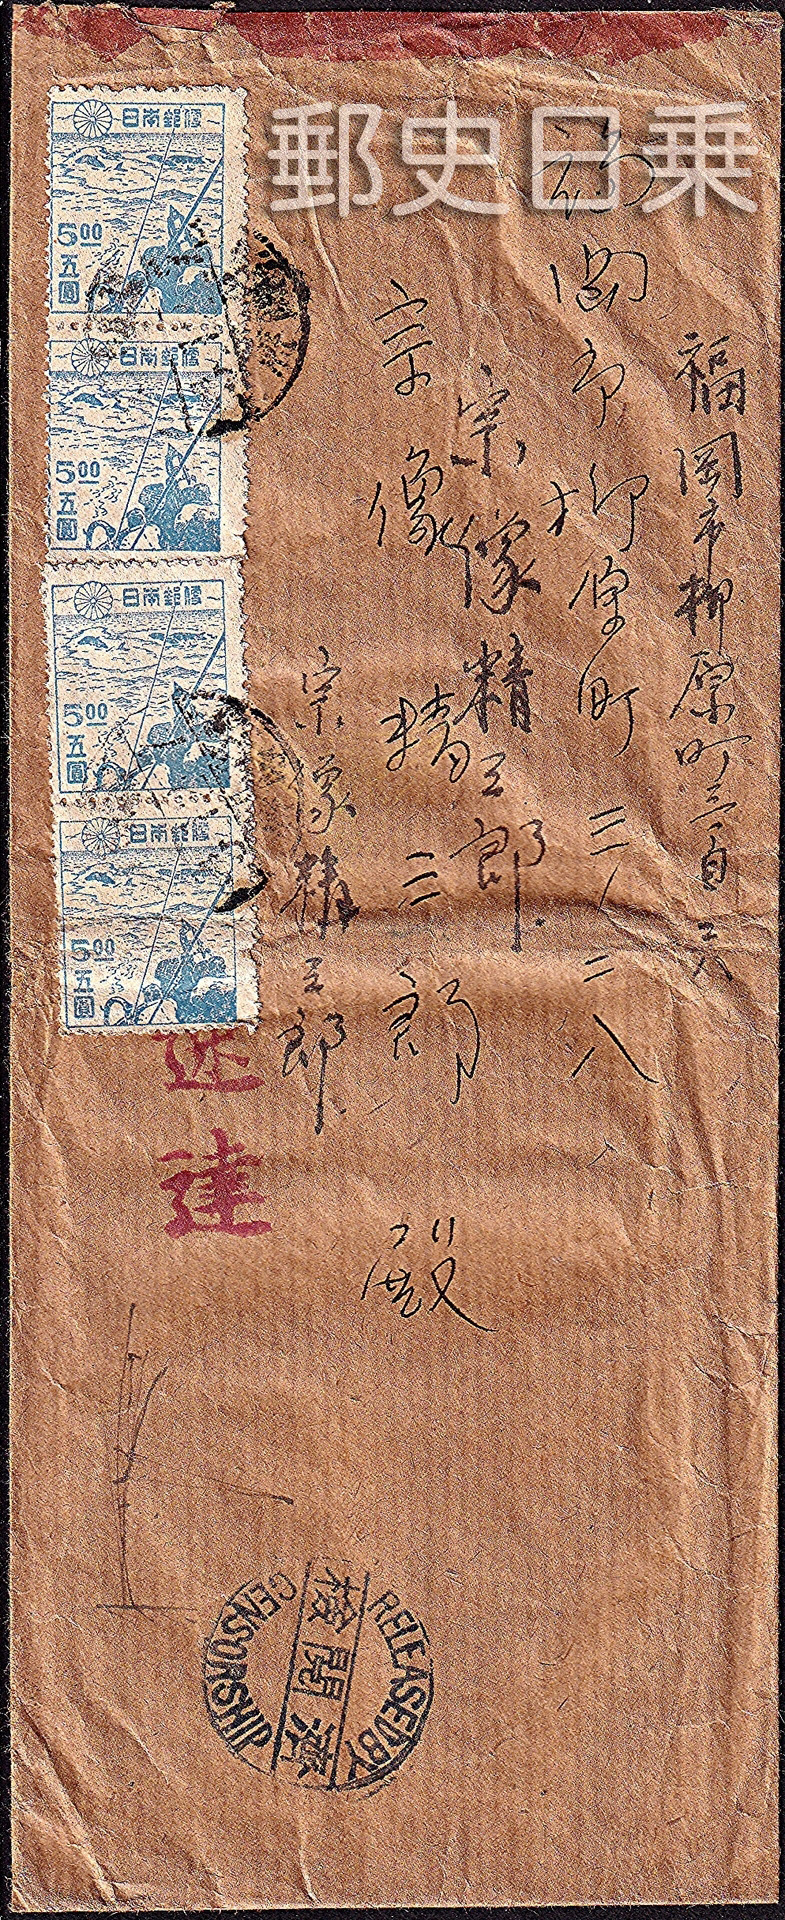 郵史日乗
福岡市柳原町三百三八
福岡市柳原町三八二八
宗像精三郎
宗像精三郎 殿
宗像精三郎
日本郵便
5.00
五圓
日本郵便
5.00
五圓
日本郵便
5.00
五圓
日本郵便
5.00
五圓
速達
RELEASED BY
検閲済
CENSORSHIP